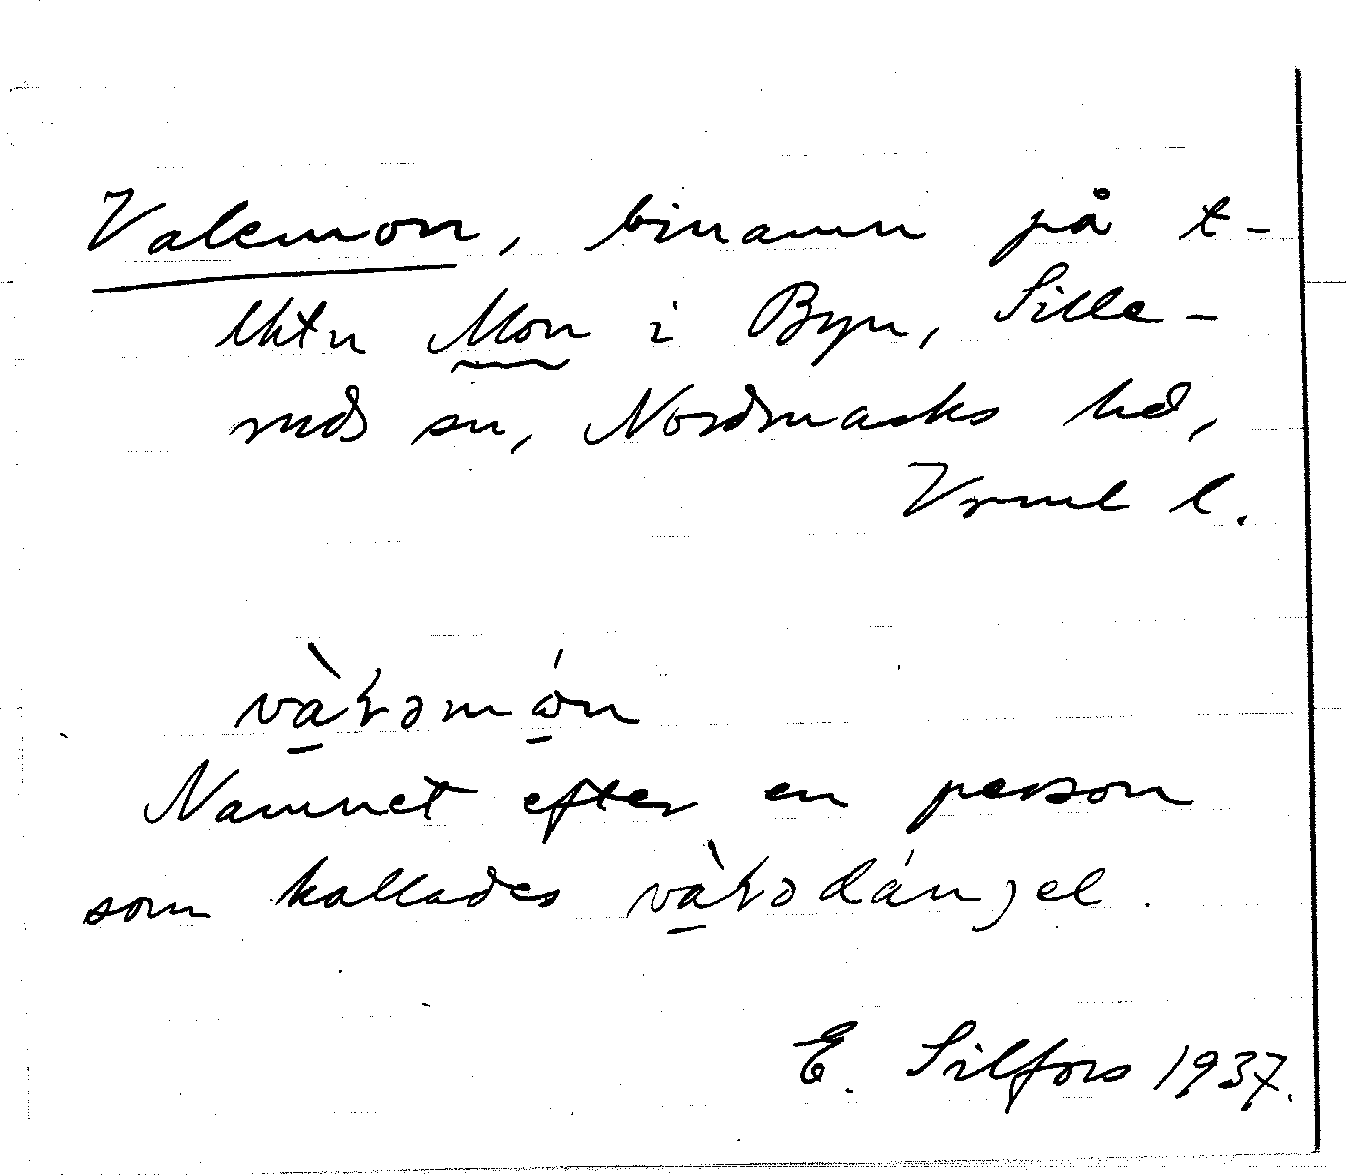 Valemon, binamn på t-
lktn Mon i Byn, Sille-
ruds sn, Nordmarks hd,
Vrml l.
Namnet efter en person
som kallades
E. Silfors 1937.